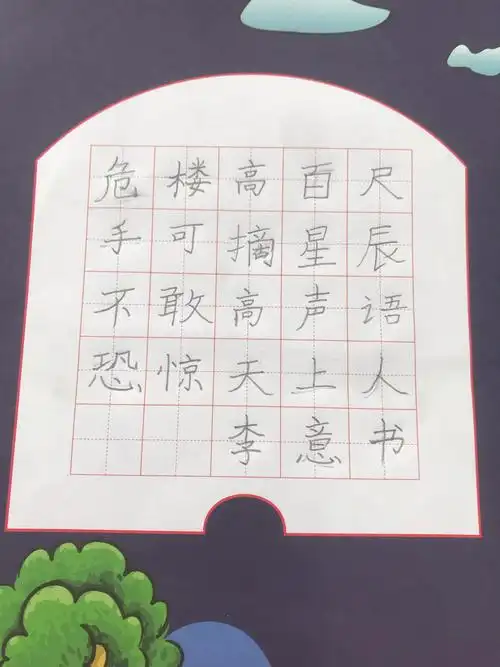 危楼高百尺
手可摘星辰
不敢高声语
恐惊天上人
李意书